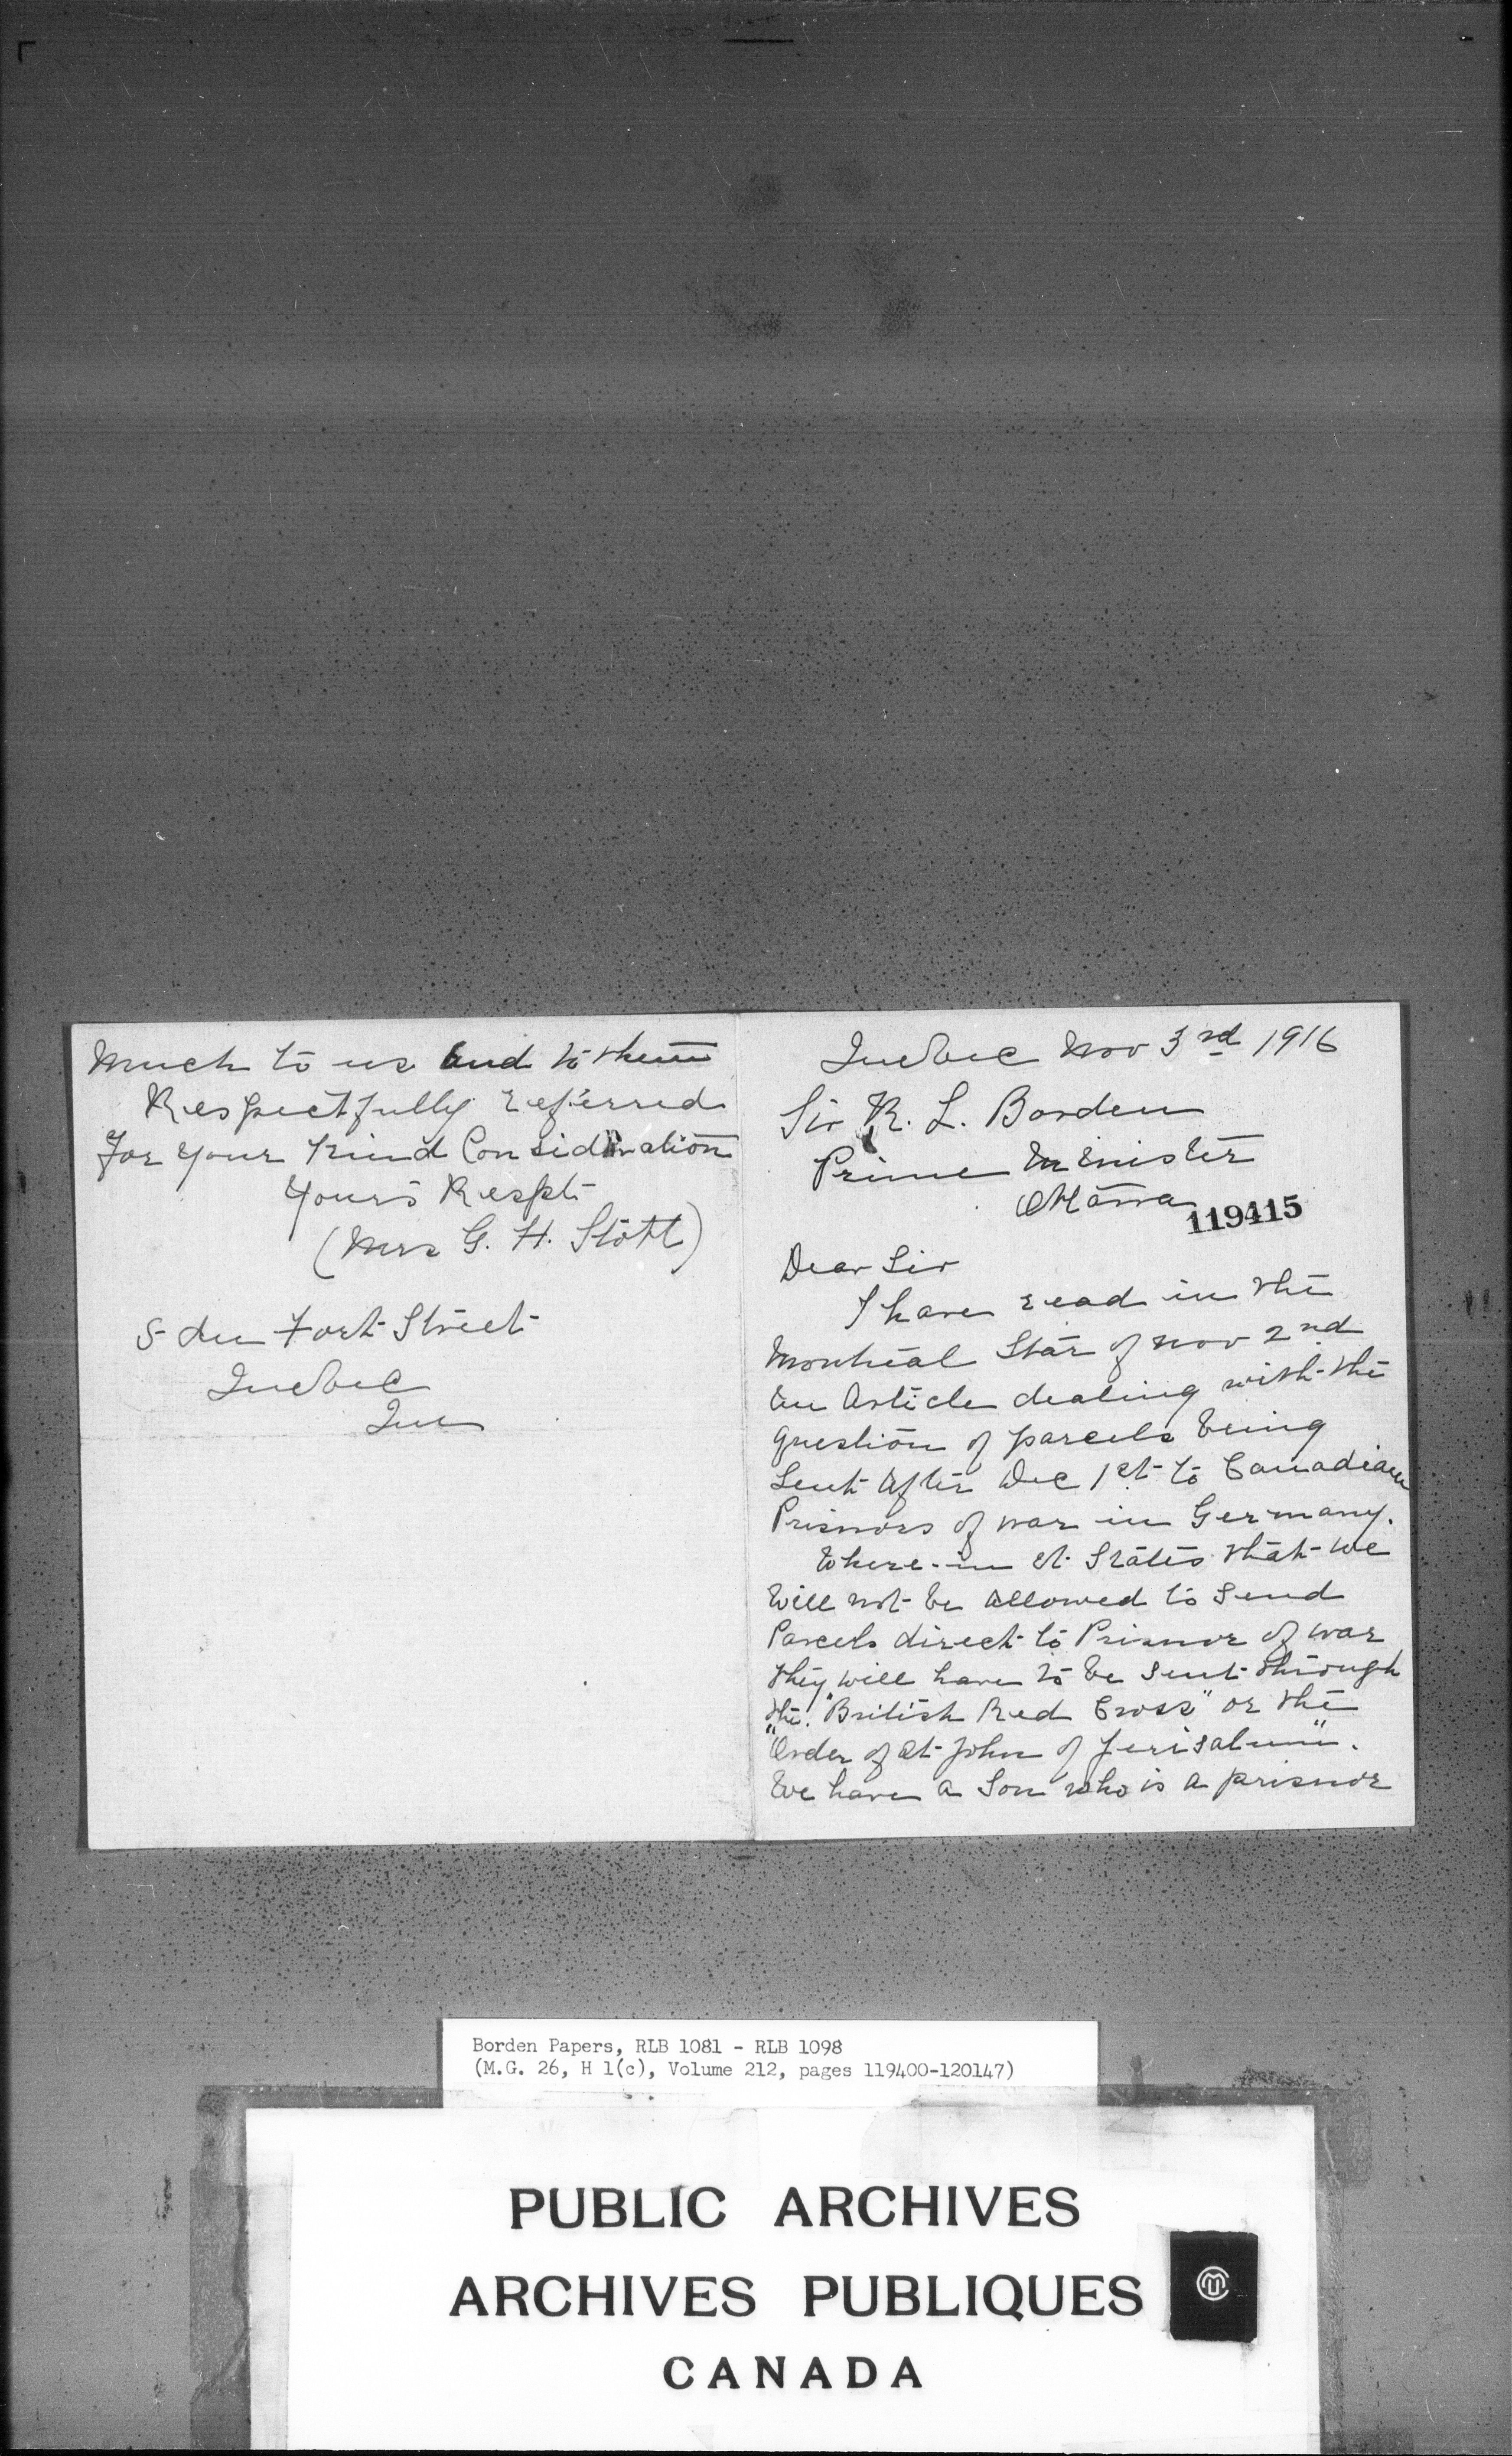 Much to us and to them
Respectfully referred
For your Kind Considration
Yours Respt
(Mrs G. H. Stott)
5 du Fort Street
Quebec
Que
Quebec Nov 3rd 1916
Sir R. L. Borden
Prime Minister
Ottawa
119415
Dear Sir
I have read in the
Montreal Star of Nov 2nd
an Article dealing with the
question of parcels being
sent after Dec 1st to Canadian
Prisnors of war in Germany.
Where-in it States that we
will not be allowed to send
Parcels direct to Prisnor of war
they will have to be sent through
the "British Red Cross" or the
"Order of St John of Jerisalum".
We have a Son who is a prisnor
Borden Papers, RLB 1081 - RLB 1098
(M.G. 26, H 1(c), Volume 212, pages 119400-120147)
PUBLIC ARCHIVES
ARCHIVES PUBLIQUES
CANADA